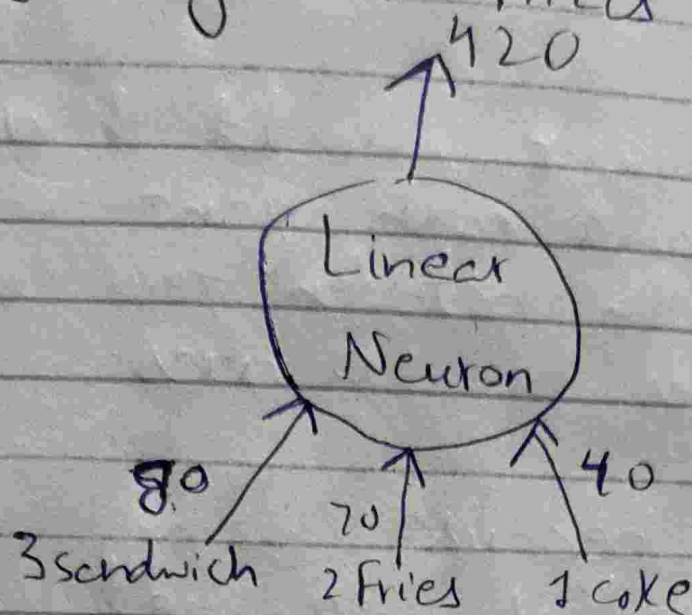 420
Linear
Neuron
80
70
40
3 sandwich
2 Fries
1 coke